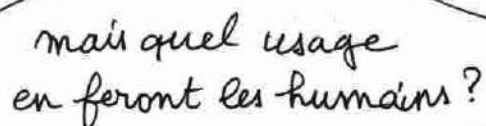 mais quel usage
en feront les humains ?